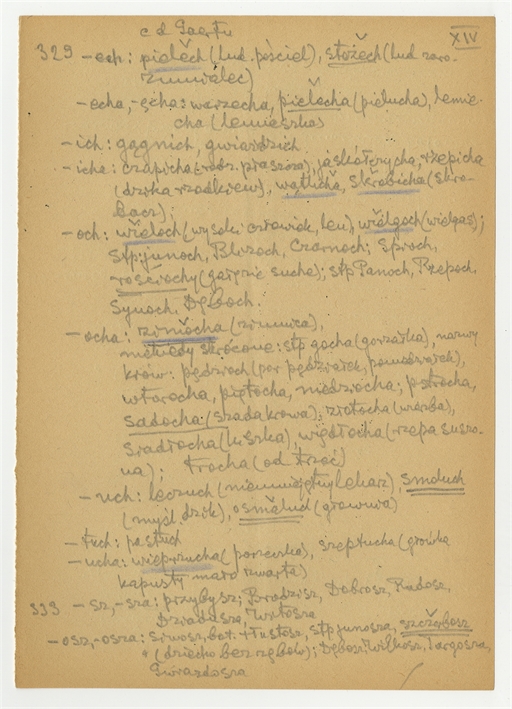 c d Gaertu
XIV
329 – ech: pielěch (lud. pościel), stožěch (lud zaro-
zumialec)
– echa, -ěcha: warzecha, pielěcha (pielucha), lemie-
cha (lemieszka)
– ich: gągnich, gwiaździch
– icha: czapicha (rodz. ptaszora), jaskółczycha, rzepicha
(dzika rzodkiew), watlicha, skrobicha (skro-
bacz);
– och: wieloch (wysoki człowiek, len), wielgoch (wielgas);
stp: junoch, Blizoch, Czarnoch; śpioch,
rościochy (gałęzie suche); stp Panoch, Rzepoch,
Synoch, Dęboch.
– ocha: zimocha (zimnica),
metody skrócone: stp gocha (gorzałka), nazwy
krów: pędzioch (por pędziałek, poniedziałek),
wtorocha, piętocha, niedziocha; pstrocha,
sadocha (szada krowa), złotocha (wierzba),
siadłocha (łuszka), więdłocha (rzepa suszo-
na); trocha (od trzeć)
– uch: leczuch (nieumiejętny lekarz), smoluch
(myśl. dzik), osmaluch (głownia)
– tuch: pastuch
– ucha: wieprzucha (porzeczka), szeptucha (główka
kapusty mało zwarta)
333 – sz, -sza: przybysz; Brodzisz, Dobrosz, Radosz,
Dziadosza, Witosza
– osz, -osza: siwosz, bot. tłustosz, stp junosza, szczerbosz
" (dziecko bez zębów); Dębosz, Wilkosz, Targosza,
Gwiazdosza